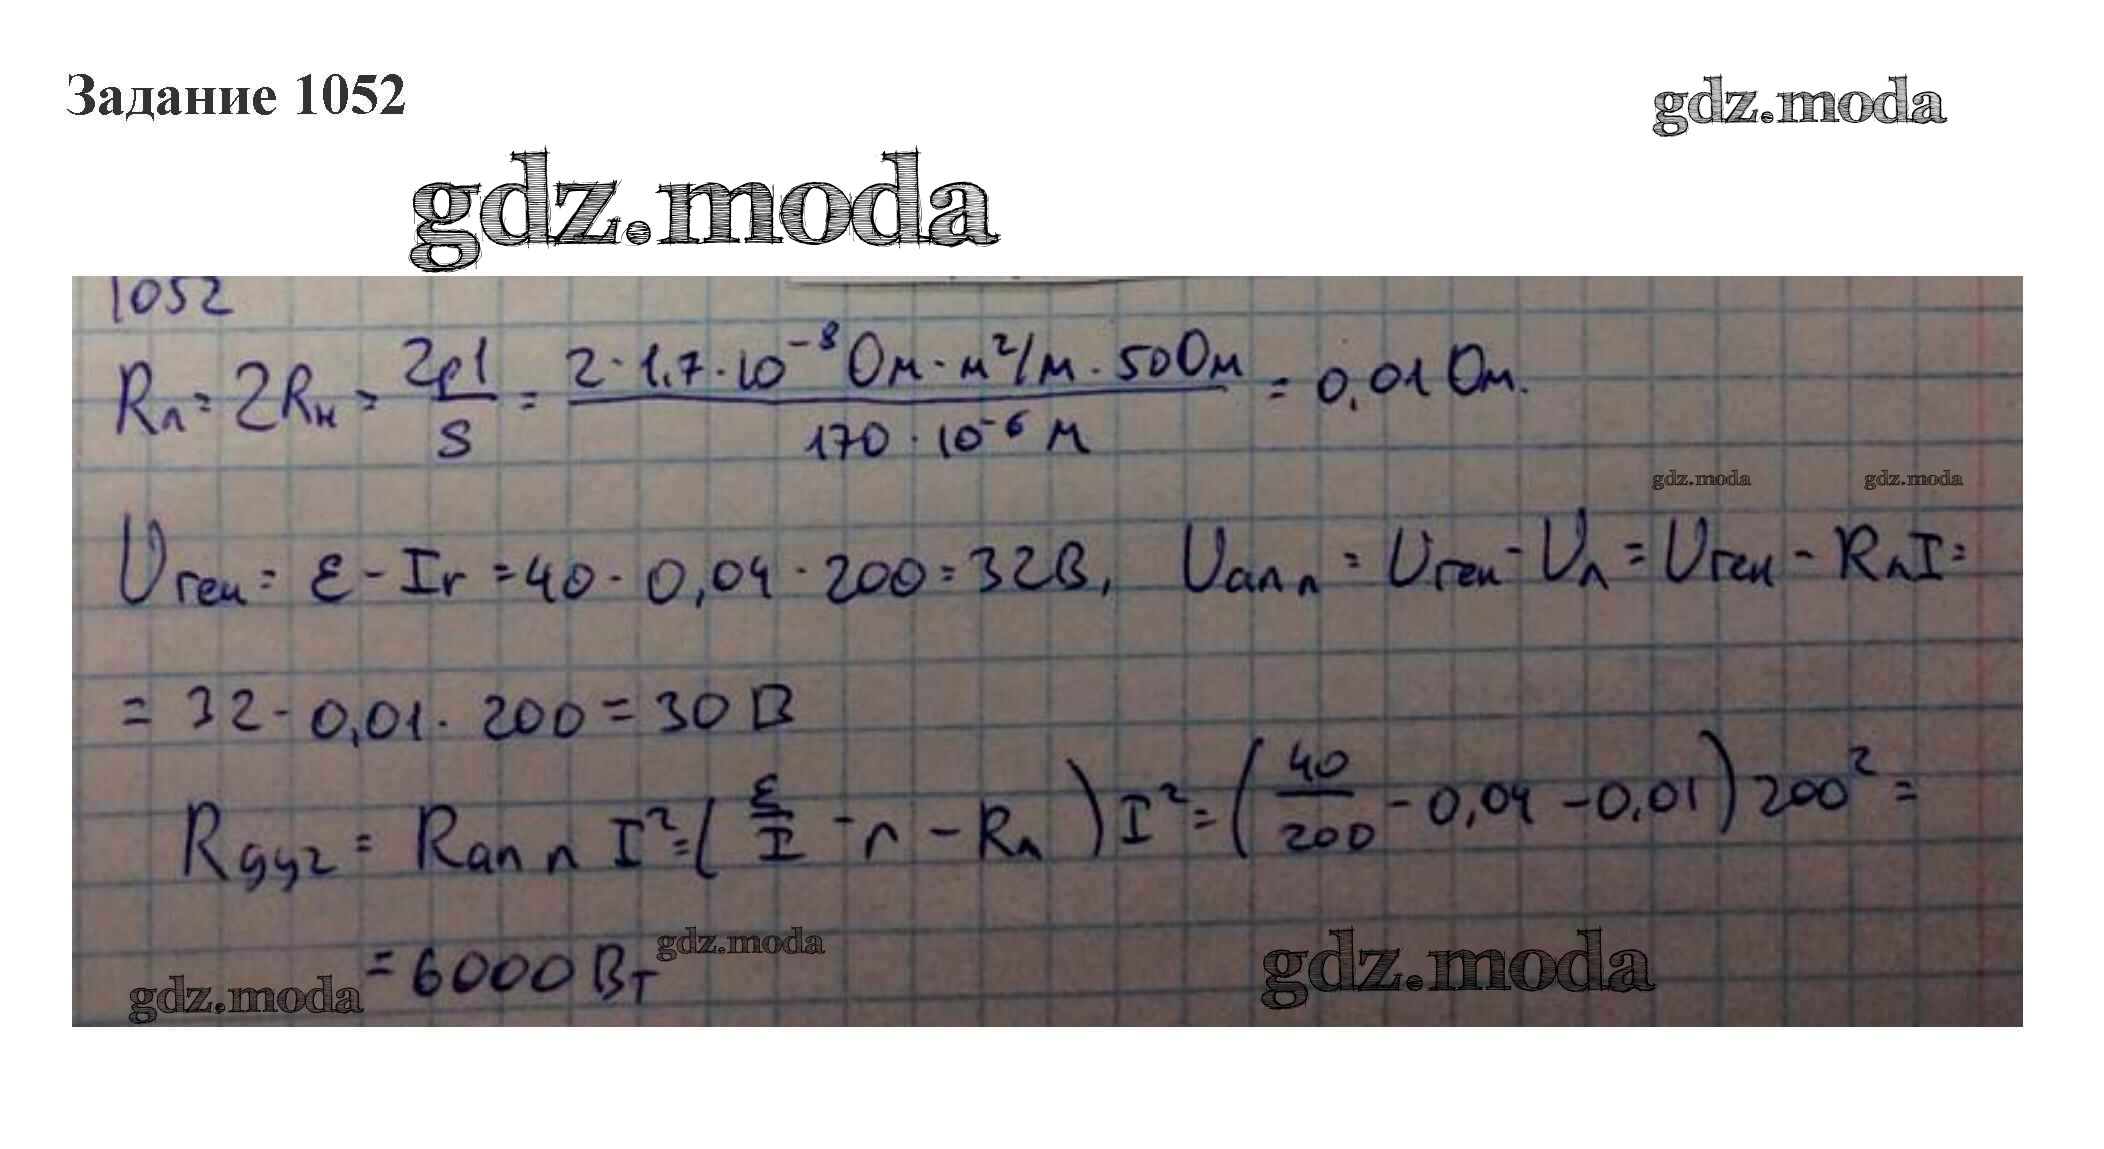 Задание 1052
gdz.moda
gdz.moda
1052
Rл = 2Rн = 2ρl/S = (2·1,7·10⁻⁸ Ом·м²/м·50Ом)/(170·10⁻⁶ м) = 0,01 Ом.
gdz.moda gdz.moda
Uген = ε - Ir = 40 - 0,04 · 200 = 32В, Uапп = Uген - Uл = Uген - RлI =
= 32 - 0,01 · 200 = 30 В
Rдуг = Rапп I² = (ε/I - r - Rл) I² = (40/200 - 0,04 - 0,01) 200² =
= 6000 Вт
gdz.moda
gdz.moda
gdz.moda